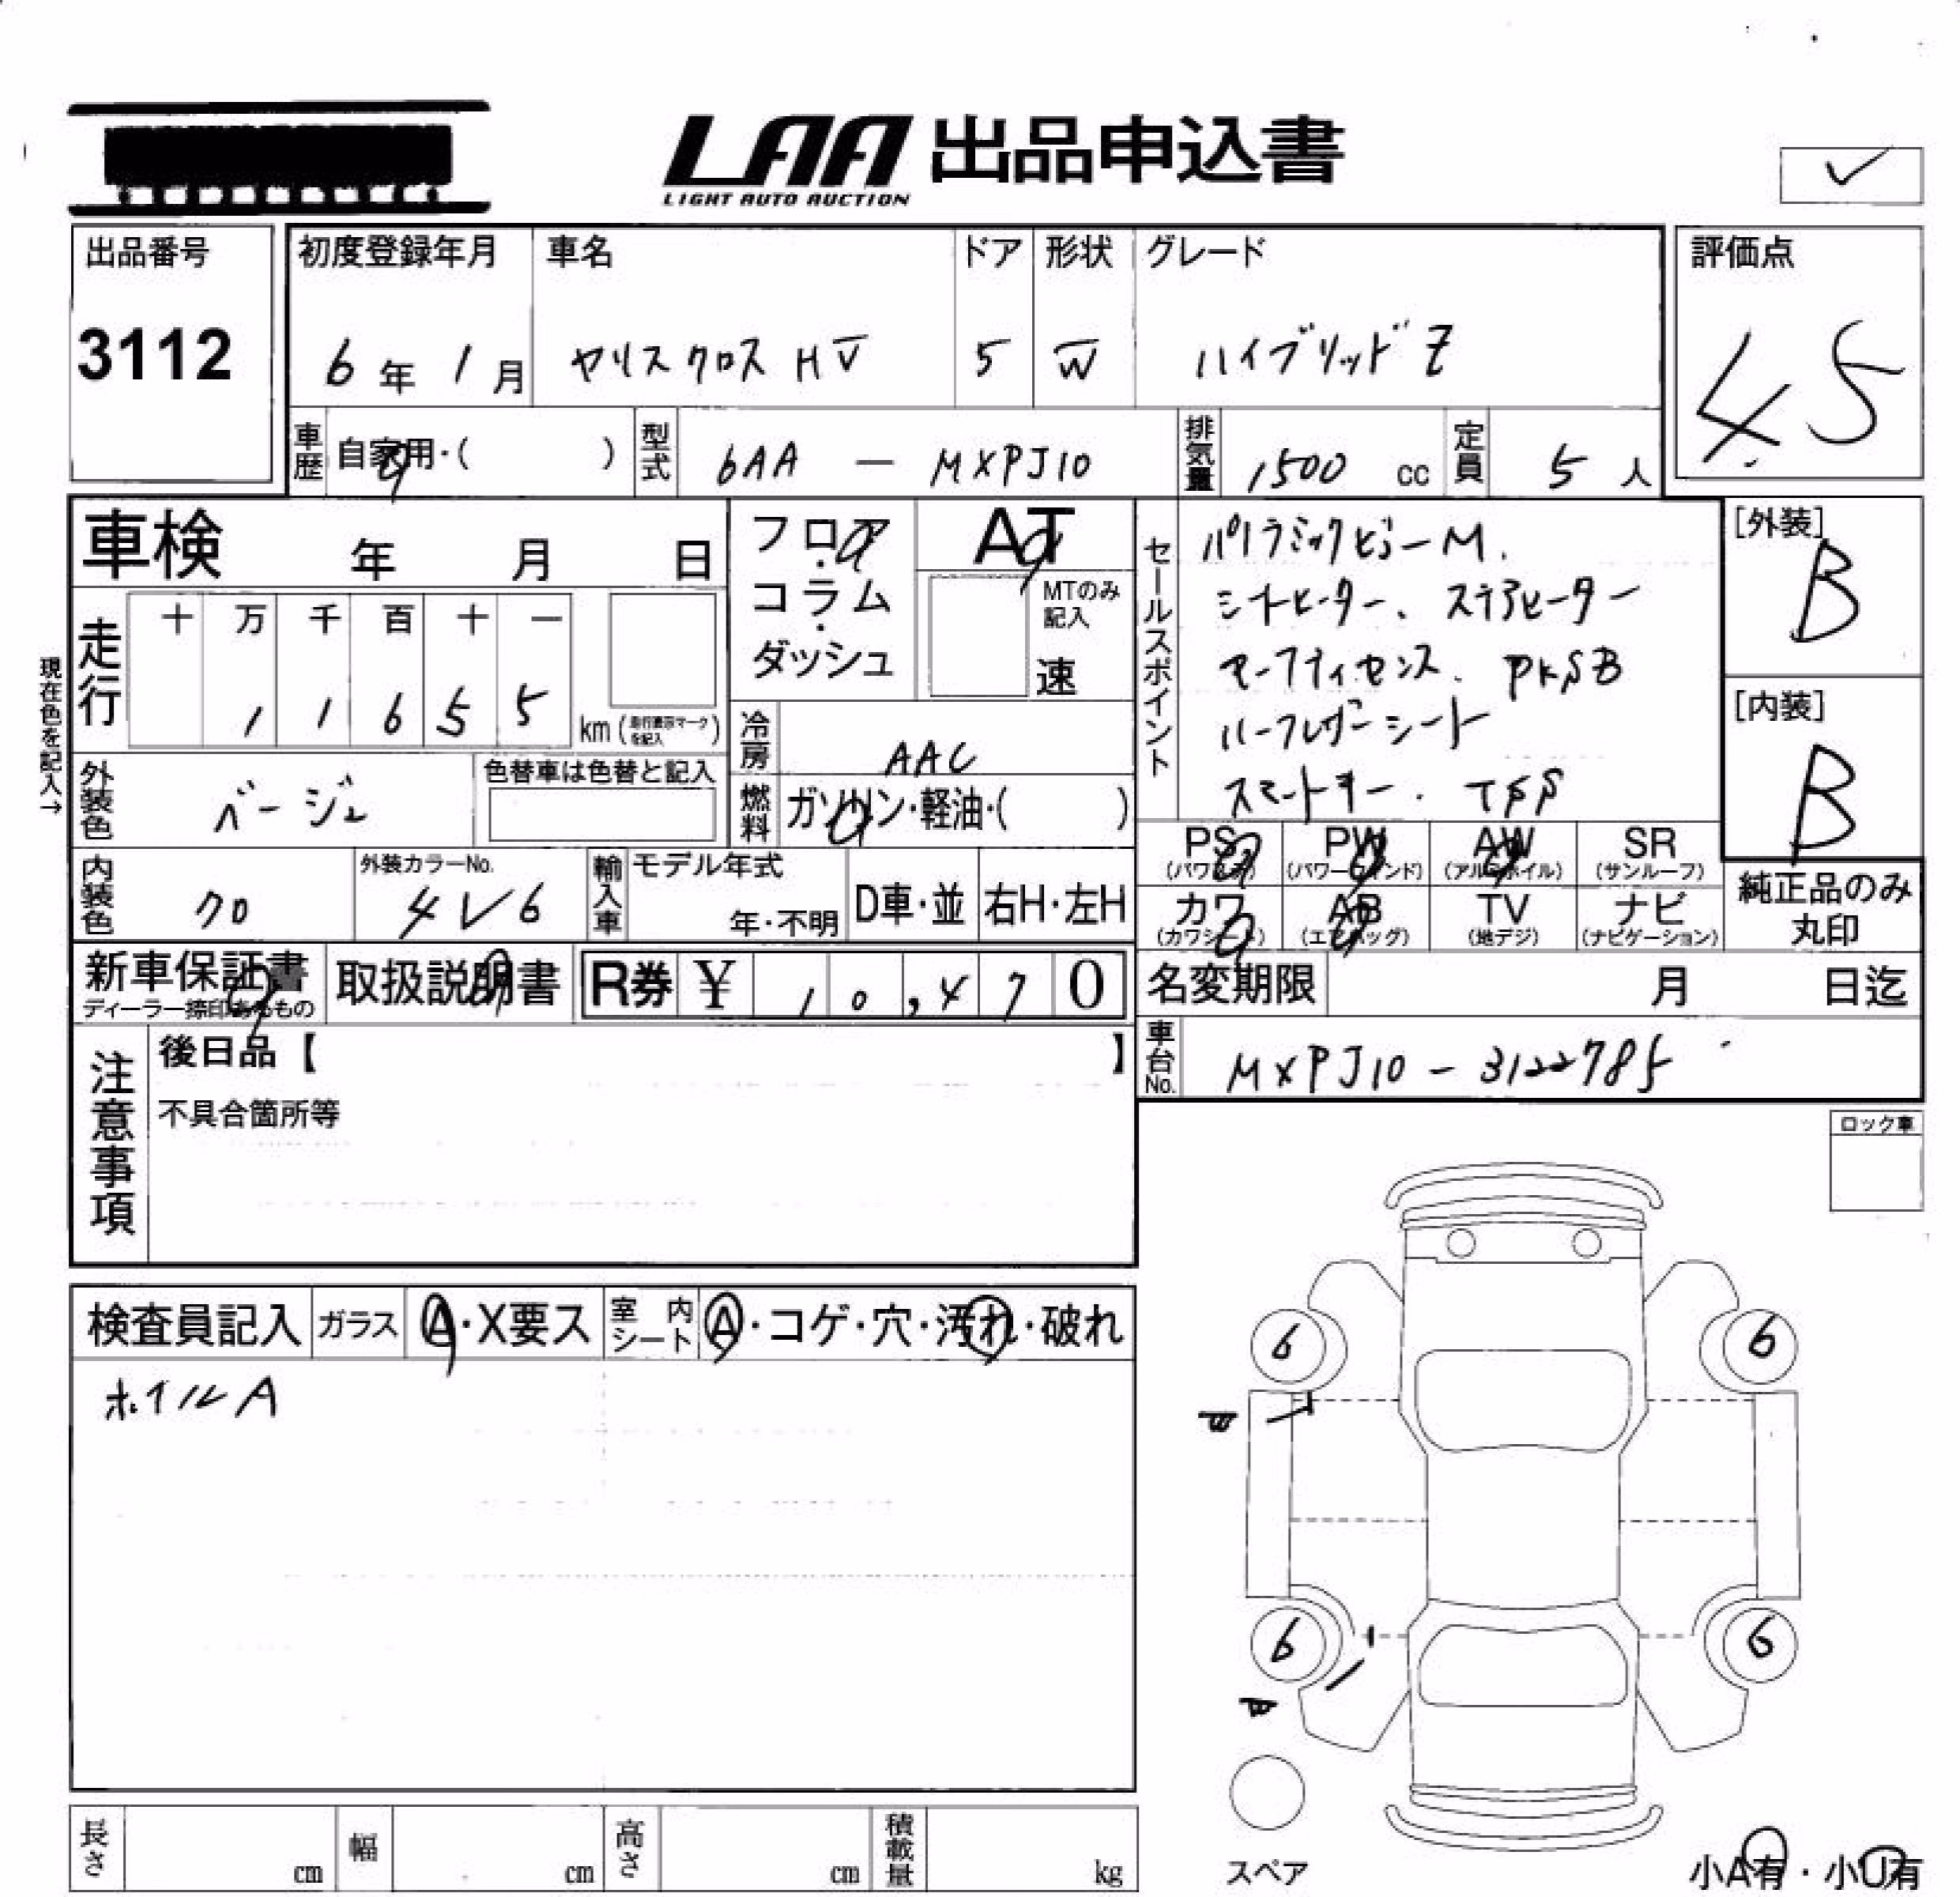 LAA 出品申込書
LIGHT AUTO AUCTION
出品番号
3112
初度登録年月
6年1月
車名
ヤリスクロス HV
ドア
5
形状
W
グレード
ハイブリッドZ
評価点
4.5
車歴 自家用・( )
型式 6AA — MXPJ10
排気量 1500 cc
定員 5人
車検 年 月 日
フロア・コラム・ダッシュ
AT
MTのみ記入
速
走行 十 万 千 百 十 一
1 1 6 5 5
km (走行表示マークを記入)
現在色を記入→
冷房 AAC
外装色 ベージュ
色替車は色替と記入
燃料 ガソリン・軽油・( )
内装色 クロ
外装カラーNo.
4V6
輸入車 モデル年式
年・不明
D車・並
右H・左H
新車保証書
ディーラー捺印あるもの
取扱説明書
R券 ¥ 10,470
セールスポイント
パノラミックビューM.
シートヒーター、ステアヒーター
セーフティセンス. PKSB
ハーフレザーシート
スマートキー. TSS
[外装]
B
[内装]
B
PS (パワステ)
PW (パワーウインド)
AW (アルミホイル)
SR (サンルーフ)
カワ (カワシート)
AB (エアバッグ)
TV (地デジ)
ナビ (ナビゲーション)
純正品のみ
丸印
名変期限 月 日迄
車台No. MXPJ10-3122785
注意事項
後日品【 】
不具合箇所等
ロック車
検査員記入
ガラス A・X要ス
室内シート A・コゲ・穴・汚れ・破れ
ホイルA
6 6
6 6
スペア
小A有・小U有
長さ cm
幅 cm
高さ cm
積載量 kg